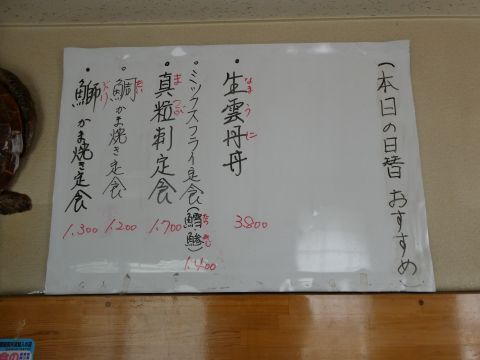 (本日の日替 おすすめ)
・生雲丹丼 3.800
なま うに
・ミックスフライ定食(鱈鯵) 1.400
たら あじ
・真粒刺定食 1.700
ま つぶ
・鯛かま焼き定食 1.200
たい
・鰤かま焼き定食 1.300
ぶり